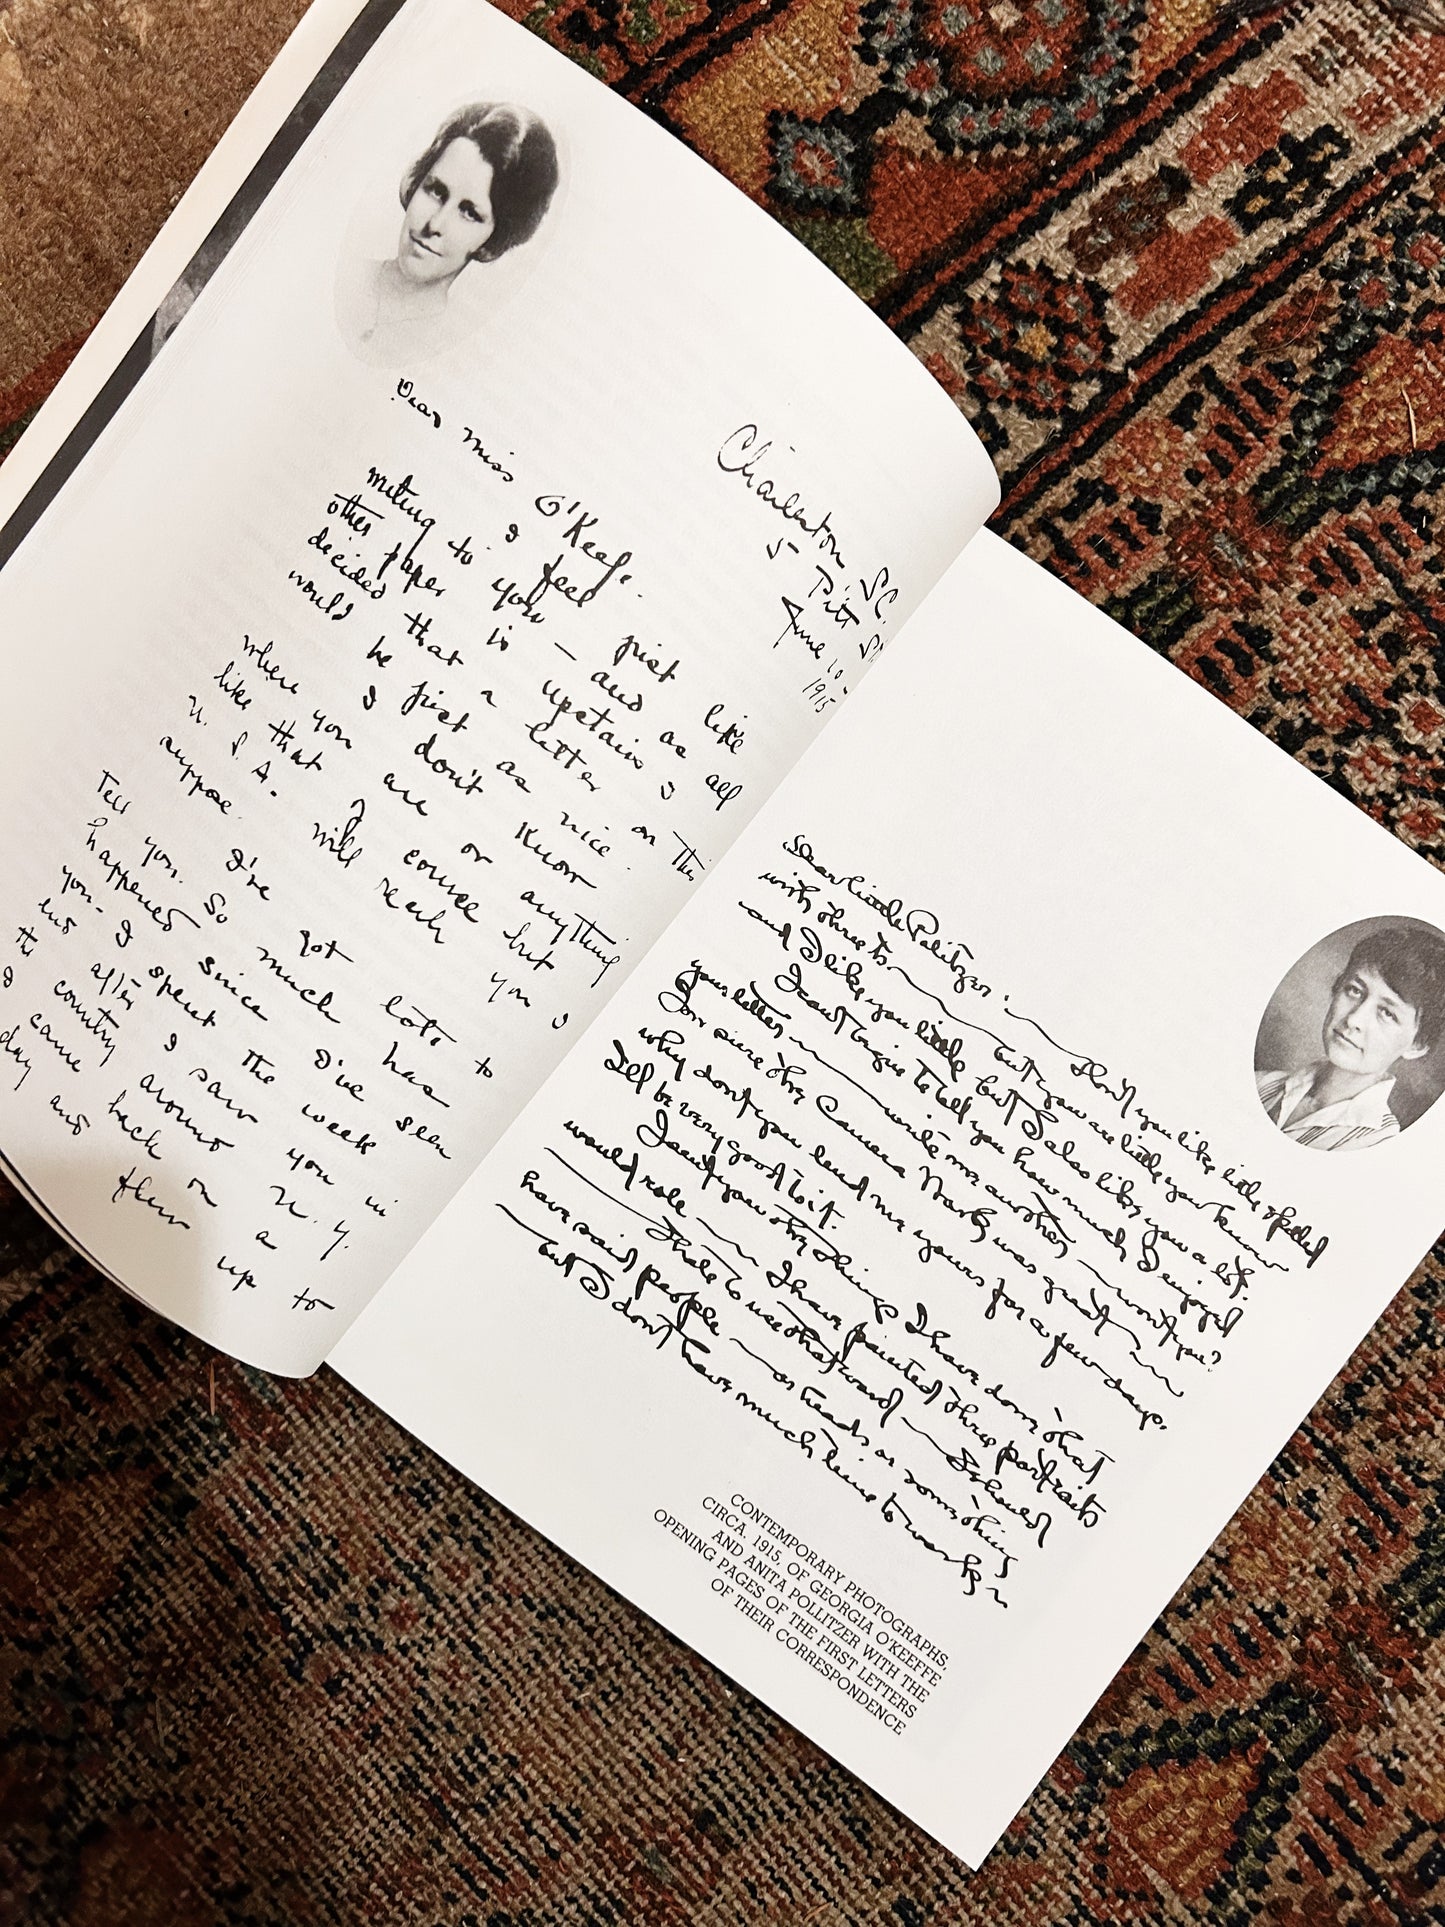 Charleston, S.C.
5 Pitt St.
June 10 -
1915
Dear Miss O'Keef.
I feel just like
writing to you – and as all
other paper is upstairs I
decided that a letter on this
would be just as nice.
I don't know
where you are or anything
like that of course but
U. S. A. will reach you I
suppose.
I've got lots to
Tell you. So much has
happened since I've seen
you - I spent the week
end after I saw you in
the country around N. Y.
I came back on a
day and up to
Dear little Politzer.
Dont you like little spelled
with three ts. — but you are little you know
and I like you little but I also like you a lot.
I cant begin to tell you how much I enjoyed
your letter — write me another — wont you?
Camera Works was great —
why dont you lend me yours for a few days.
Ill be very good to it.
I sent you the things I have done that
would role — I have painted three portraits
— I hate to use that word — I should
have said people — or heads or something
— but I dont have much time to work —
CONTEMPORARY PHOTOGRAPHS,
CIRCA. 1915, OF GEORGIA O'KEEFFE
AND ANITA POLLITZER WITH THE
OPENING PAGES OF THE FIRST LETTERS
OF THEIR CORRESPONDENCE